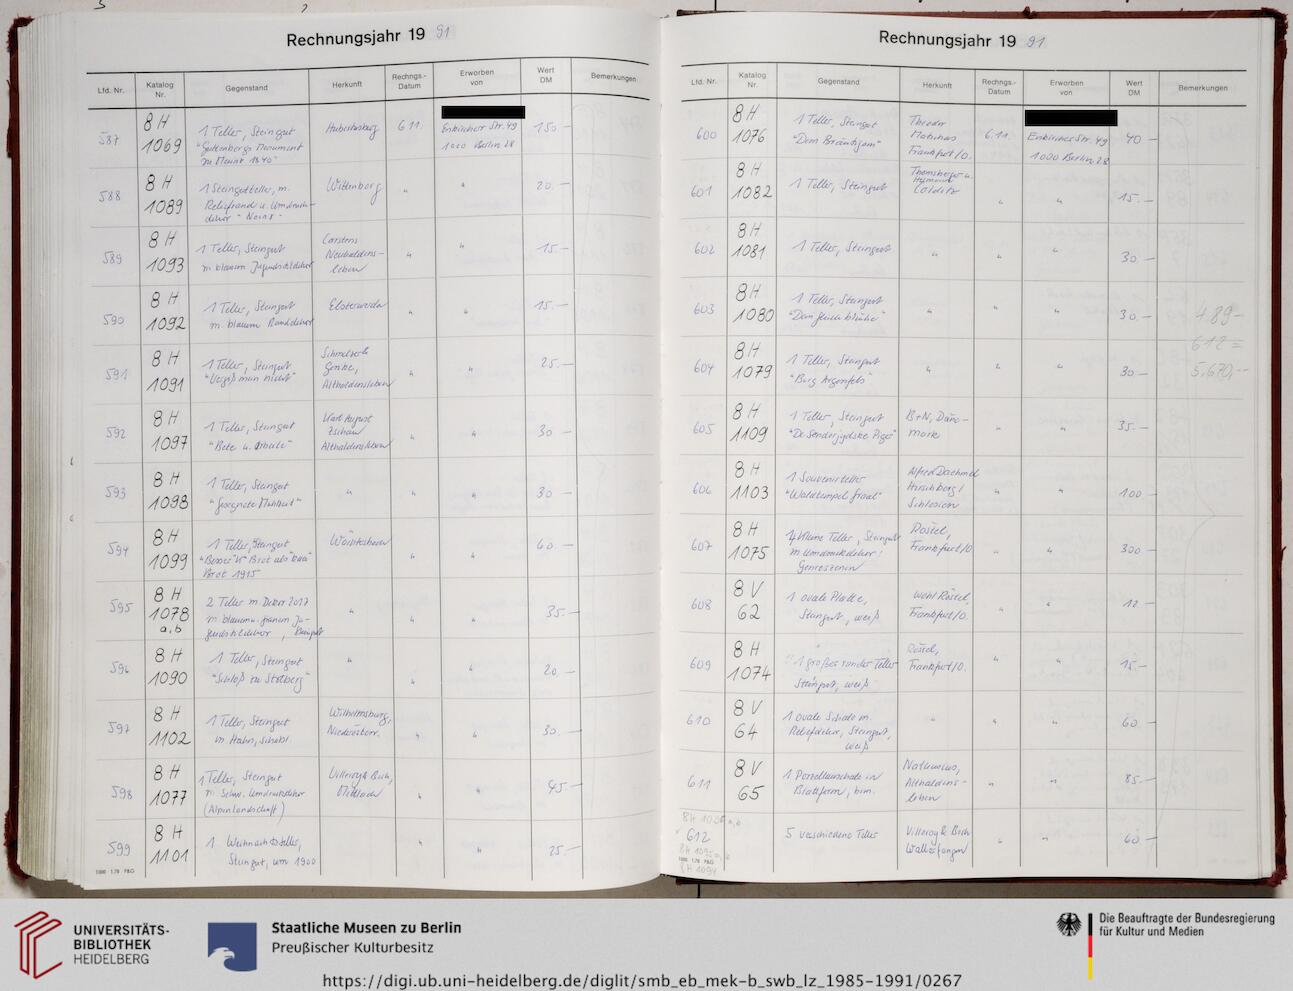 Rechnungsjahr 19 91
Lfd. Nr. Katalog Nr. Gegenstand Herkunft Rechngs.-Datum Erworben von Wert DM Bemerkungen
587 8 H 1069 1 Teller, Steingut "Gutenbergs Monument zu Mainz 1840" Hubertusburg 6.11. Enkircher Str. 49 1000 Berlin 28 150.-
588 8 H 1089 1 Steingutteller, m. Reliefrand u. Umdruck- Wittenberg " " 20.-
589 8 H 1093 1 Teller, Steingut m blauem Jugendstildekor Carstens Neuhaldens-leben " " 15.-
590 8 H 1092 1 Teller, Steingut m. blauem Randdekor Elsterwerda " " 15.-
591 8 H 1091 1 Teller, Steingut "Vergiß mein nicht" Althaldensleben " " 25.-
592 8 H 1097 1 Teller, Steingut "Bete u. Arbeite" Karl August Althaldensleben " " 30 -
593 8 H 1098 1 Teller, Steingut "Gesegnete Mahlzeit" " " " 30 -
594 8 H 1099 1 Teller, Steingut "Besser "K" Brot als "kein" Brot 1915 " " 60.-
595 8 H 1078 a,b 2 Teller m Dekor 2017 m blauem u. grauem Ju-gendstildekor, Steingut " " " 35.-
596 8 H 1090 1 Teller, Steingut "Schloß zu Stolberg" " " " 20.-
597 8 H 1102 1 Teller, Steingut m. Hahn, Wilhelmsburg, Niederösterr. " " 30.-
598 8 H 1077 1 Teller, Steingut m. Schw. Umdruckdekor (Alpenlandschaft) Villeroy & Boch, Mettlach " " 45.-
599 8 H 1101 1 Weihnachtsteller, Steingut, um 1900 " " 25.-
1000 1.78 P&G
Rechnungsjahr 19 91
Lfd. Nr. Katalog Nr. Gegenstand Herkunft Rechngs.-Datum Erworben von Wert DM Bemerkungen
600 8 H 1076 1 Teller, Steingut "Dem Bräutigam" Theodor Frankfurt/O. 6.11. Enkircher Str. 49 1000 Berlin 28 40 -
601 8 H 1082 1 Teller, Steingut Thomsberger u. Hermann Colditz " " 15.-
602 8 H 1081 1 Teller, Steingut " " " 30 -
603 8 H 1080 1 Teller, Steingut " " " 30.- 489-
612 =
604 8 H 1079 1 Teller, Steingut " " " 30 - 5.670,--
605 8 H 1109 1 Teller, Steingut "De Sønderjydske Piger" B+N, Däne-mark " " 35.-
606 8 H 1103 1 Souvenirteller Hirschberg/ Schlesien " " 100 -
607 8 H 1075 4 kleine Teller, Steingut m Umdruckdekor: Genreszenen Frankfurt/O " " 300 -
608 8 V 62 1 ovale Platte, Steingut, weiß wohl Frankfurt/O. " " 12 -
609 8 H 1074 1 großer runder Teller Steingut, weiß Frankfurt/O. " " 15.-
610 8 V 64 1 ovale Schale m. Reliefdekor, Steingut, weiß " " " 60 -
611 8 V 65 1 Porzellanschale in Blattform, Nathusius, Althaldens-leben " " 85 -
612 5 verschiedene Teller Villeroy & Boch Wallerfangen " " 60 -
8 H 1094
1000 1.78 P&G
UNIVERSITÄTS-
BIBLIOTHEK
HEIDELBERG
Staatliche Museen zu Berlin
Preußischer Kulturbesitz
Die Beauftragte der Bundesregierung
für Kultur und Medien
https://digi.ub.uni-heidelberg.de/diglit/smb_eb_mek-b_swb_lz_1985-1991/0267